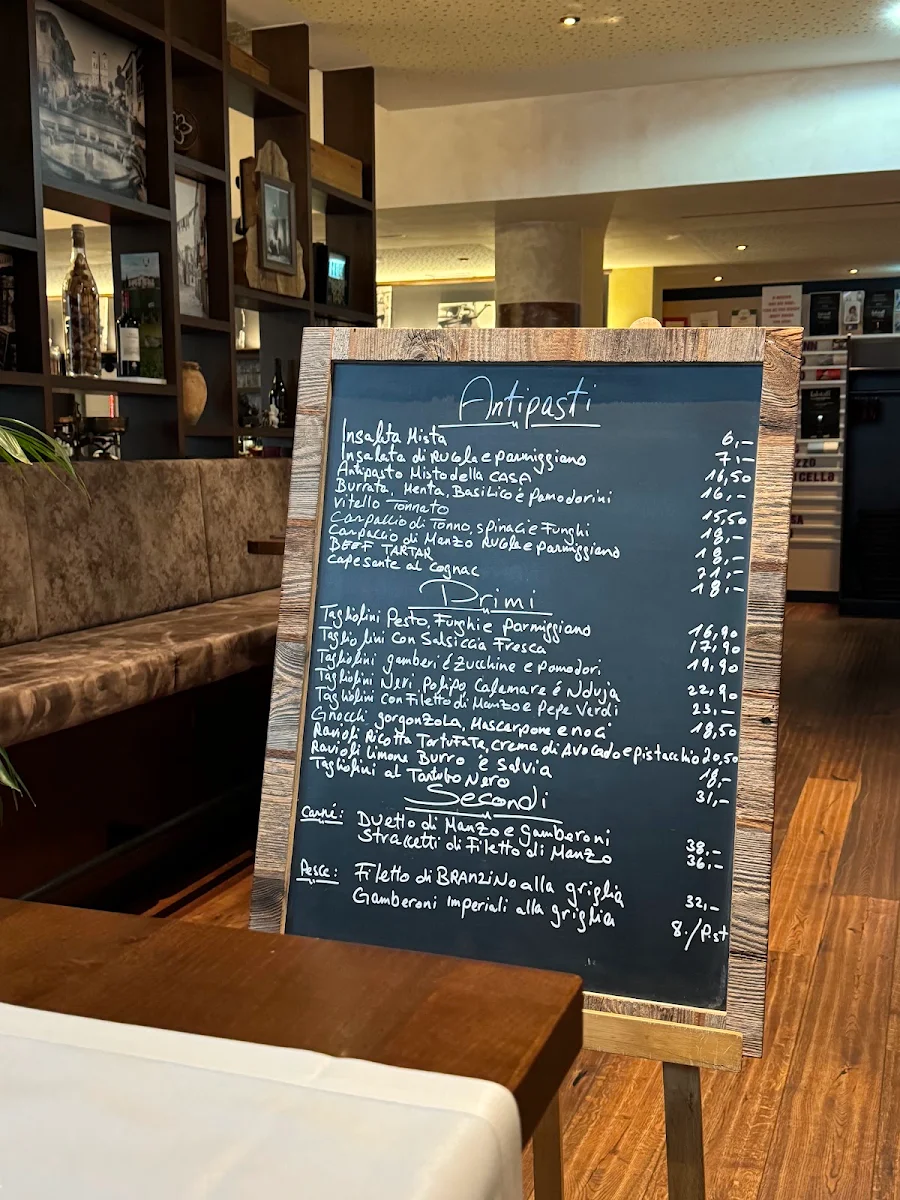 Antipasti
Insalata Mista 6,-
Insalata di RUGola e parmiggiano 7,-
Antipasto Misto della CASA 16,50
Burrata, Menta, Basilico é pomodorini 16,-
Vitello Tonnato 15,50
Carpaccio di Tonno, spinaci e Funghi 18,-
Carpaccio di Manzo RUGola e parmiggiano 18,-
BEEF TARTAR 21,-
capesante al cognac 18,-
Primi
Tagliolini Pesto, Funghi e parmiggiano 16,90
Tagliolini con Salsiccia Fresca 17,90
Tagliolini gamberi é Zucchine e pomodori 19,90
Tagliolini Neri Polipo, Calamare é Nduja 22,90
Tagliolini con Filetto di Manzo e pepe Verdi 23,-
Gnocchi gorgonzola, Mascarpone e noci 18,50
Ravioli Ricotta Tartufata, crema di Avocado e pistacchio 20,50
Ravioli limone Burro é Salvia 18,-
Tagliolini al Tartufo Nero 31,-
Secondi
Carné: Duetto di Manzo e gamberoni 38,-
Straccetti di Filetto di Manzo 36,-
Pesce: Filetto di BRANZiNo alla griglia 32,-
Gamberoni imperiali alla griglia 8./Pst